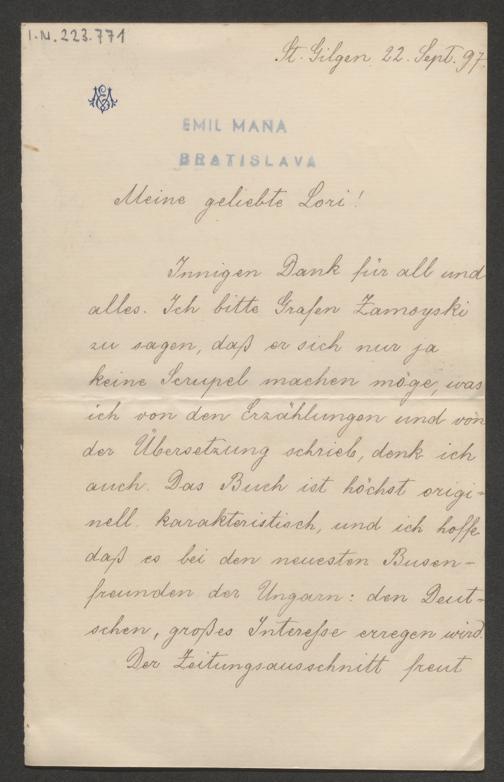 I.N. 223.771
St. Gilgen 22. Sept. 97.
EMIL MAŇA
BRATISLAVA
Meine geliebte Lori!
Innigen Dank für all und
alles. Ich bitte Grafen Zamoyski
zu sagen, daß er sich nur ja
keine Scrupel machen möge, was
ich von den Erzählungen und von
der Übersetzung schrieb, denk ich
auch. Das Buch ist höchst origi-
nell, karakteristisch, und ich hoffe
daß es bei den neuesten Busen-
freunden der Ungarn: den Deut-
schen, großes Interesse erregen wird.
Der Zeitungsausschnitt freut